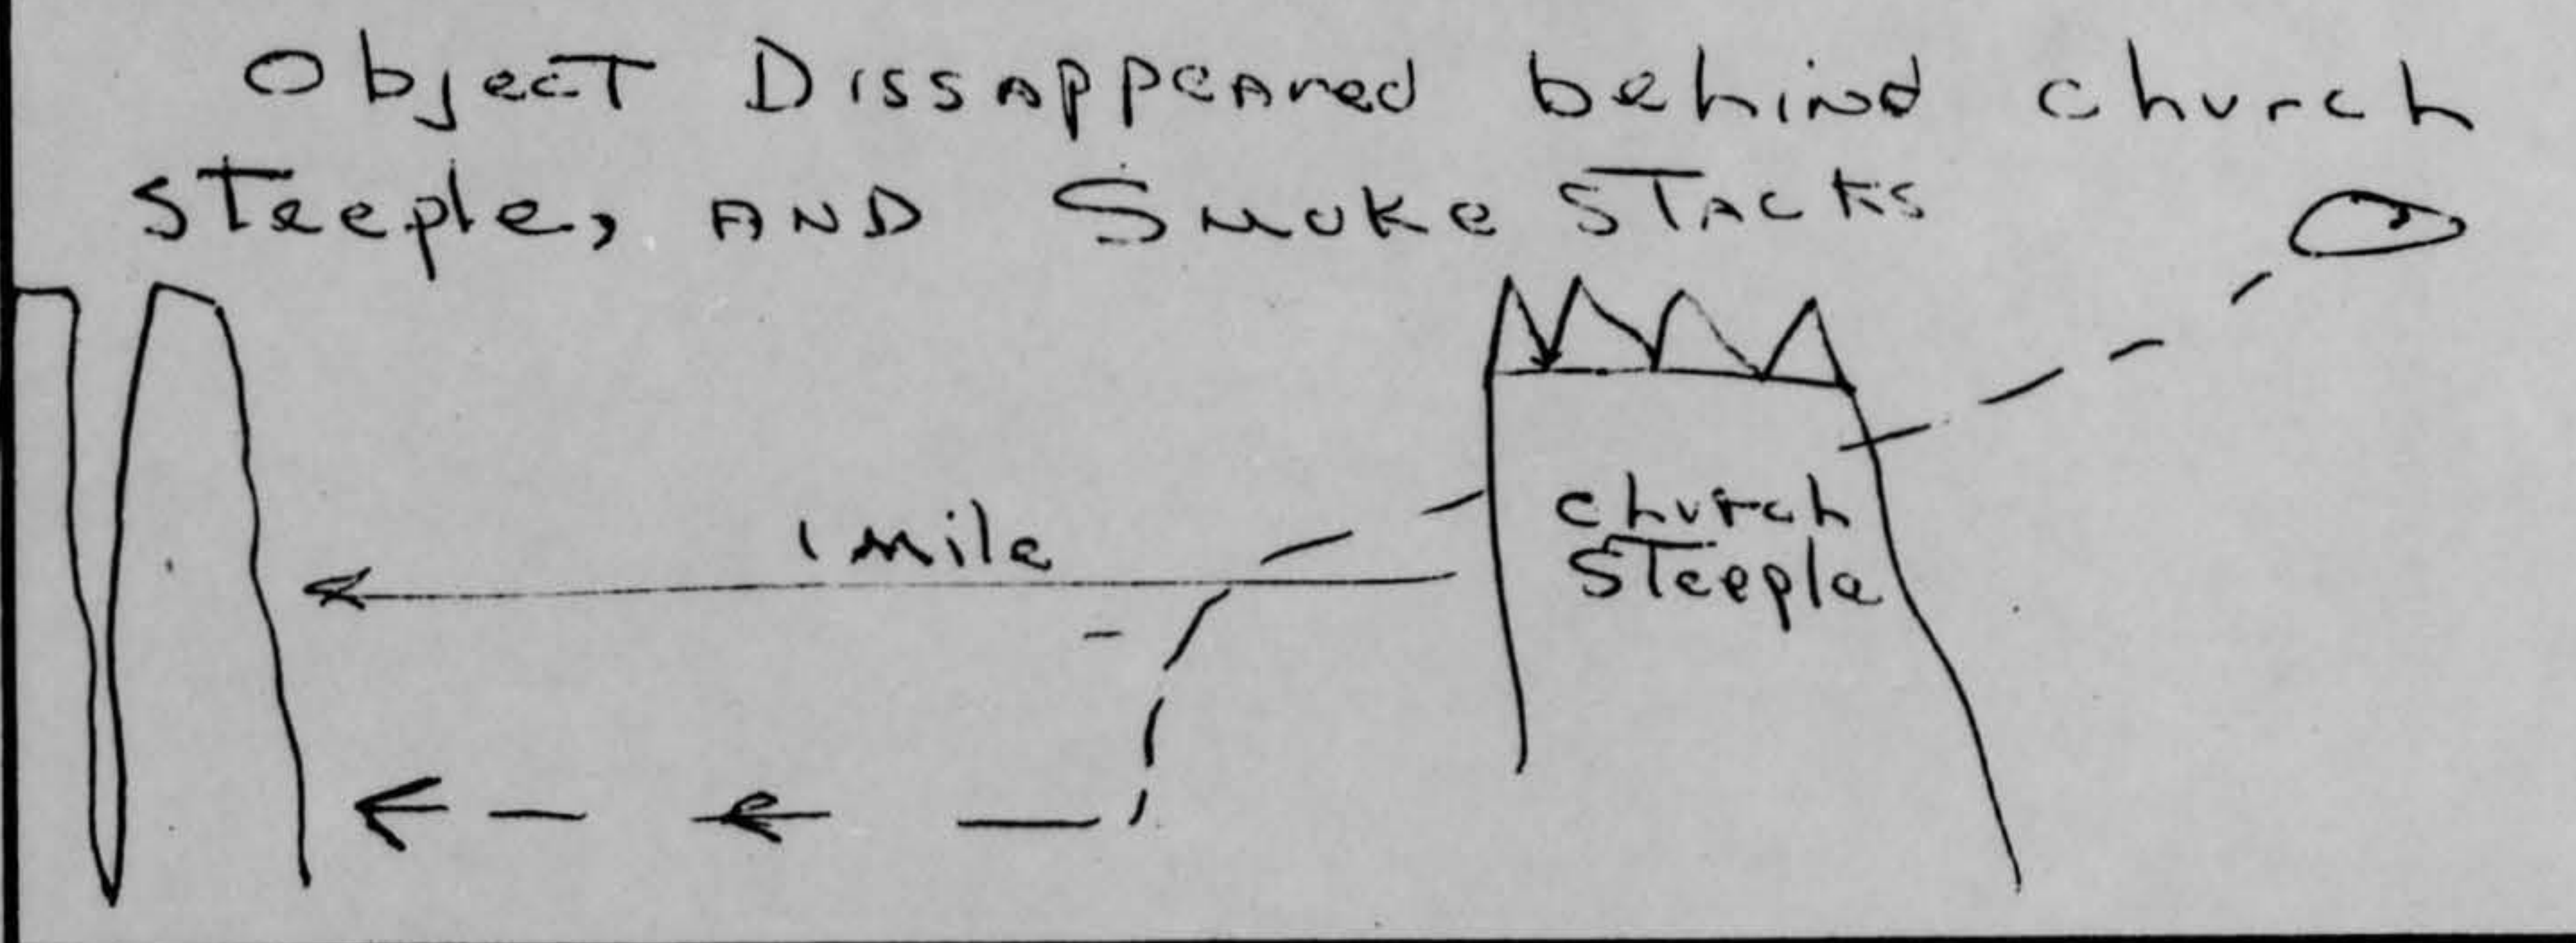 Object Dissappeared behind church
steeple, AND Smoke STACKS
1 mile
church
Steeple